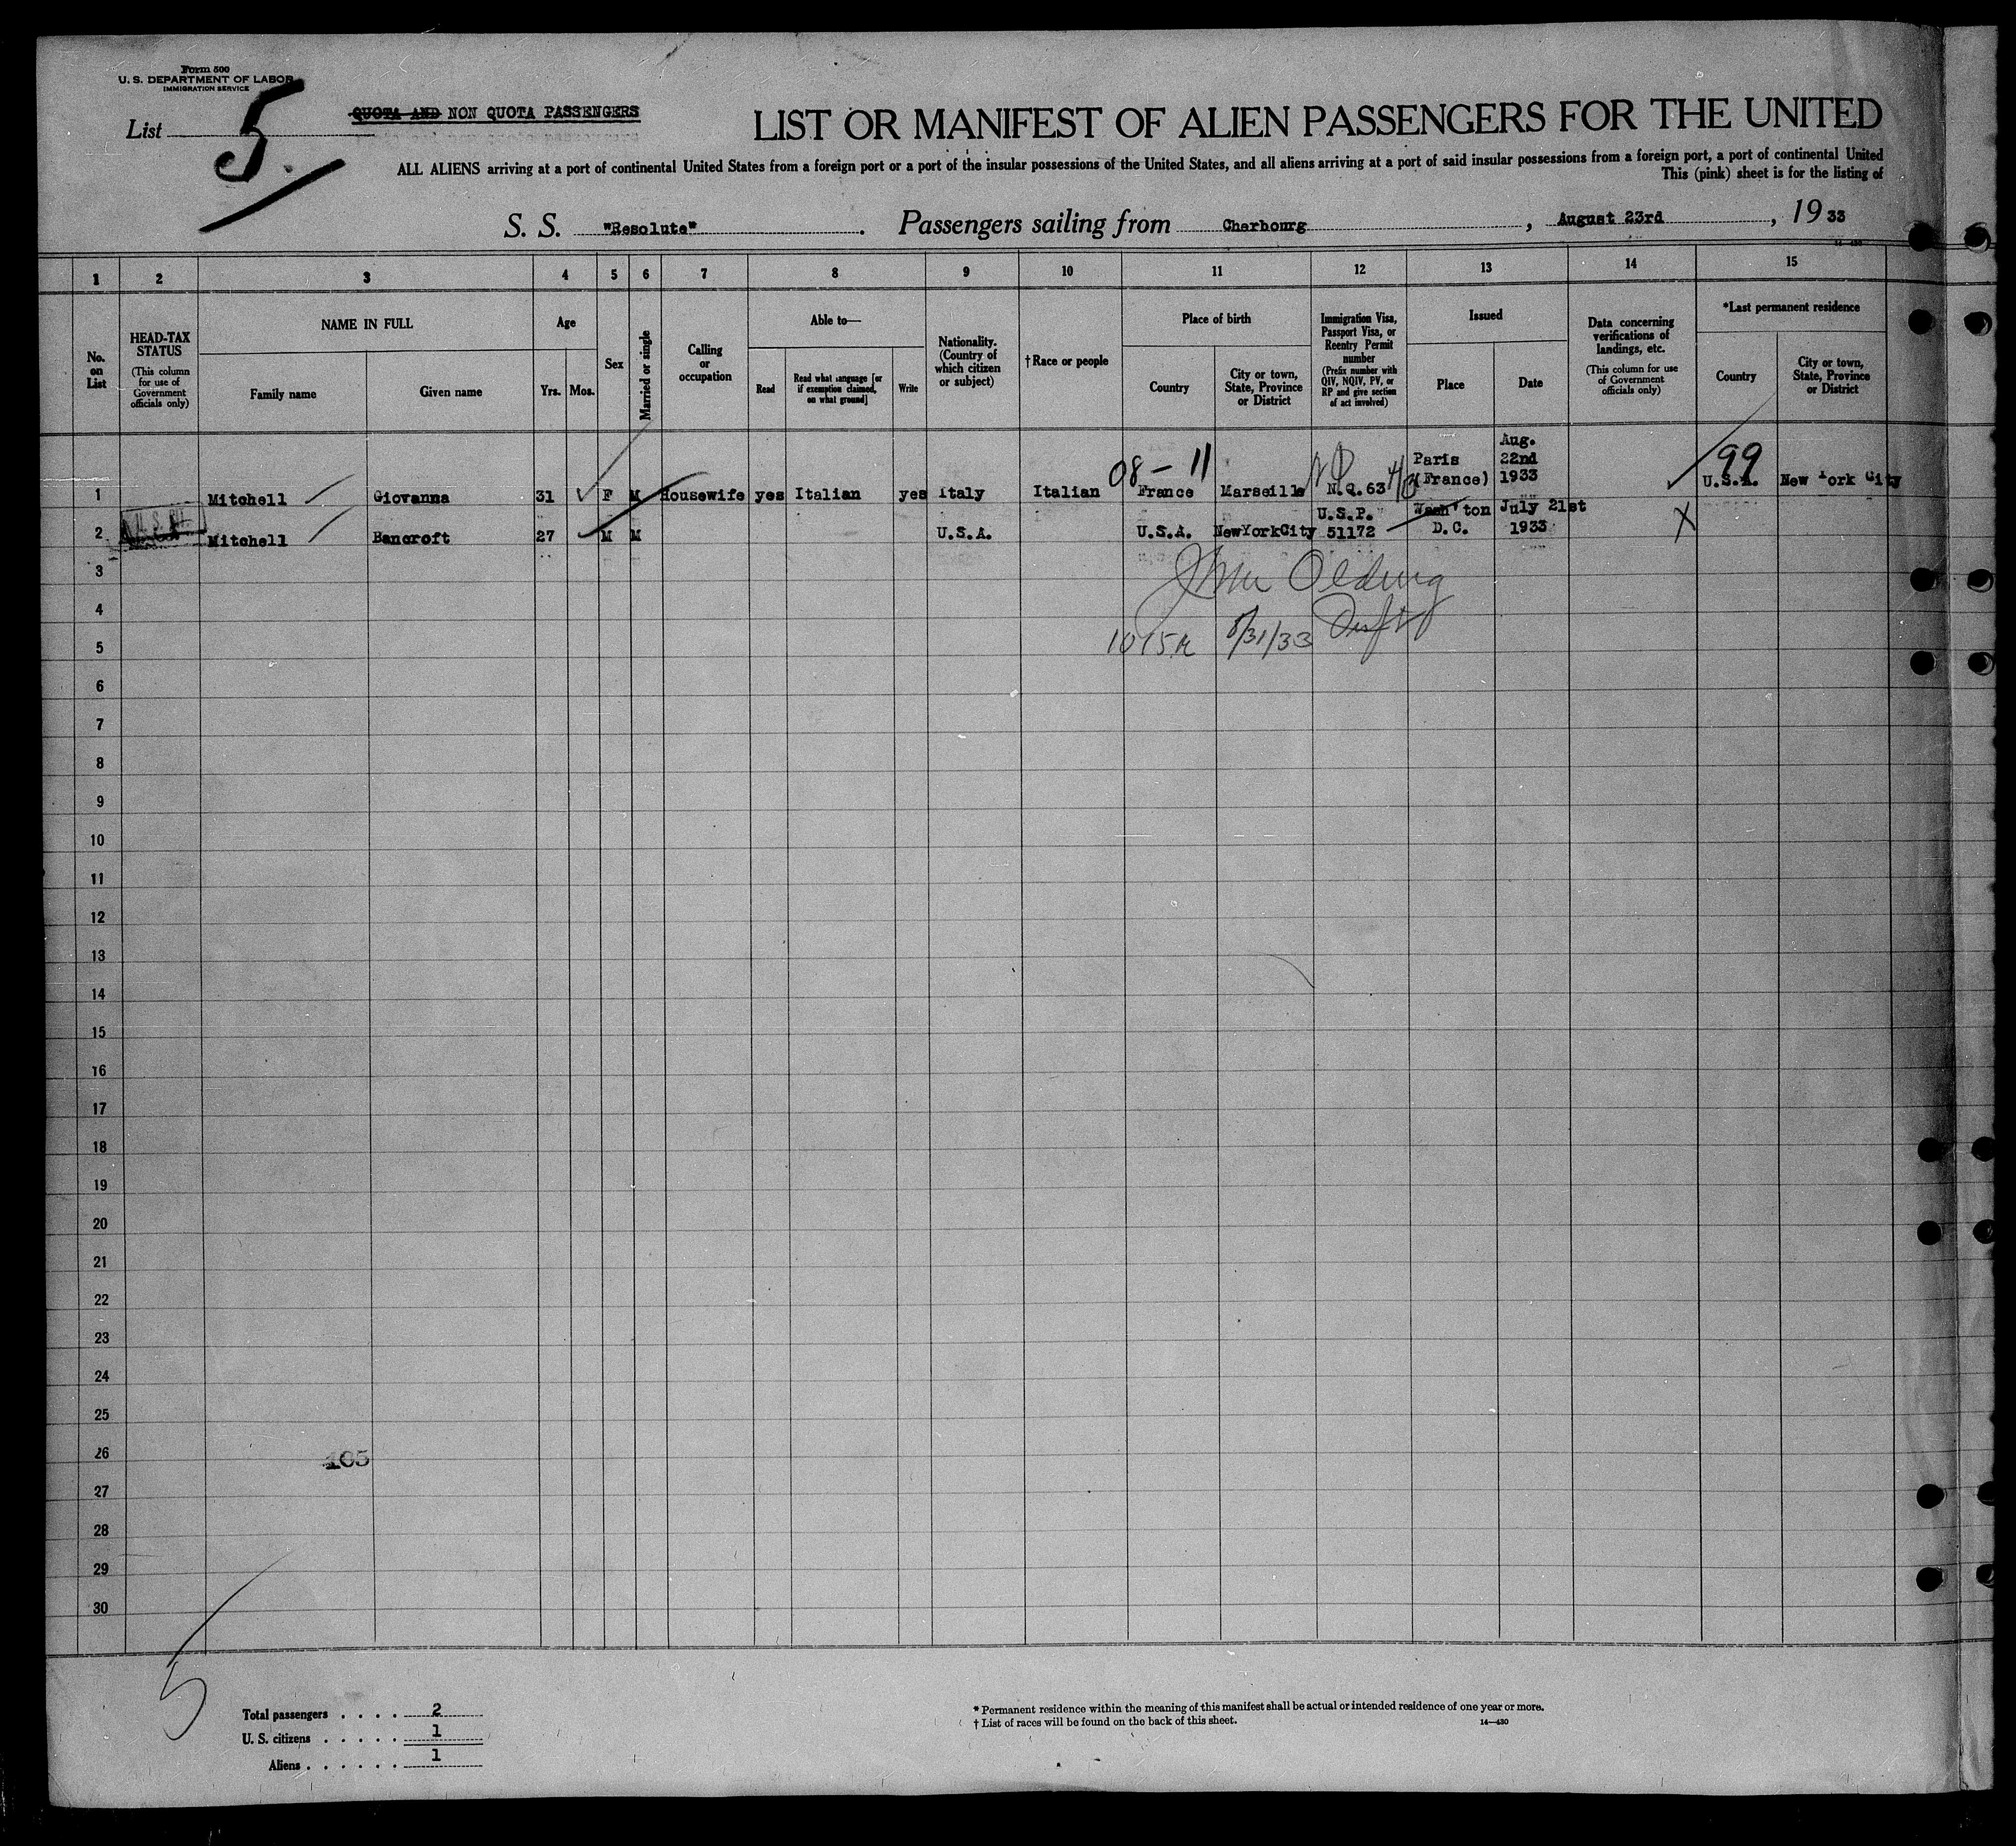 Form 500
U. S. DEPARTMENT OF LABOR
IMMIGRATION SERVICE
List 5.
QUOTA AND NON QUOTA PASSENGERS
LIST OR MANIFEST OF ALIEN PASSENGERS FOR THE UNITED
ALL ALIENS arriving at a port of continental United States from a foreign port or a port of the insular possessions of the United States, and all aliens arriving at a port of said insular possessions from a foreign port, a port of continental United
This (pink) sheet is for the listing of
S. S. "Resolute". Passengers sailing from Cherbourg, August 23rd, 1933
14—430
1 2 3 4 5 6 7 8 9 10 11 12 13 14 15
No. on List
HEAD-TAX STATUS
(This column for use of Government officials only)
NAME IN FULL
Family name
Given name
Age
Yrs.
Mos.
Sex
Married or single
Calling or occupation
Able to—
Read
Read what language [or if exemption claimed, on what ground]
Write
Nationality. (Country of which citizen or subject)
†Race or people
Place of birth
Country
City or town, State, Province or District
Immigration Visa, Passport Visa, or Reentry Permit number
(Prefix number with QIV, NQIV, PV, or RP and give section of act involved)
Issued
Place
Date
Data concerning verifications of landings, etc.
(This column for use of Government officials only)
*Last permanent residence
Country
City or town, State, Province or District
08-11
99
1 Mitchell Giovanna 31 F M Housewife yes Italian yes Italy Italian France Marseille N.Q.63 Paris (France) Aug. 22nd 1933 U.S.A. New York City
2 Mitchell Bancroft 27 M M U.S.A. U.S.A. NewYorkCity U.S.P. 51172 Wash'ton D.C. July 21st 1933 X
3
4
5 8/31/33
6
7
8
9
10
11
12
13
14
15
16
17
18
19
20
21
22
23
24
25
26
105
27
28
29
30
5
Total passengers . . . . 2
U. S. citizens . . . . . 1
Aliens . . . . . . 1
* Permanent residence within the meaning of this manifest shall be actual or intended residence of one year or more.
† List of races will be found on the back of this sheet.
14—430